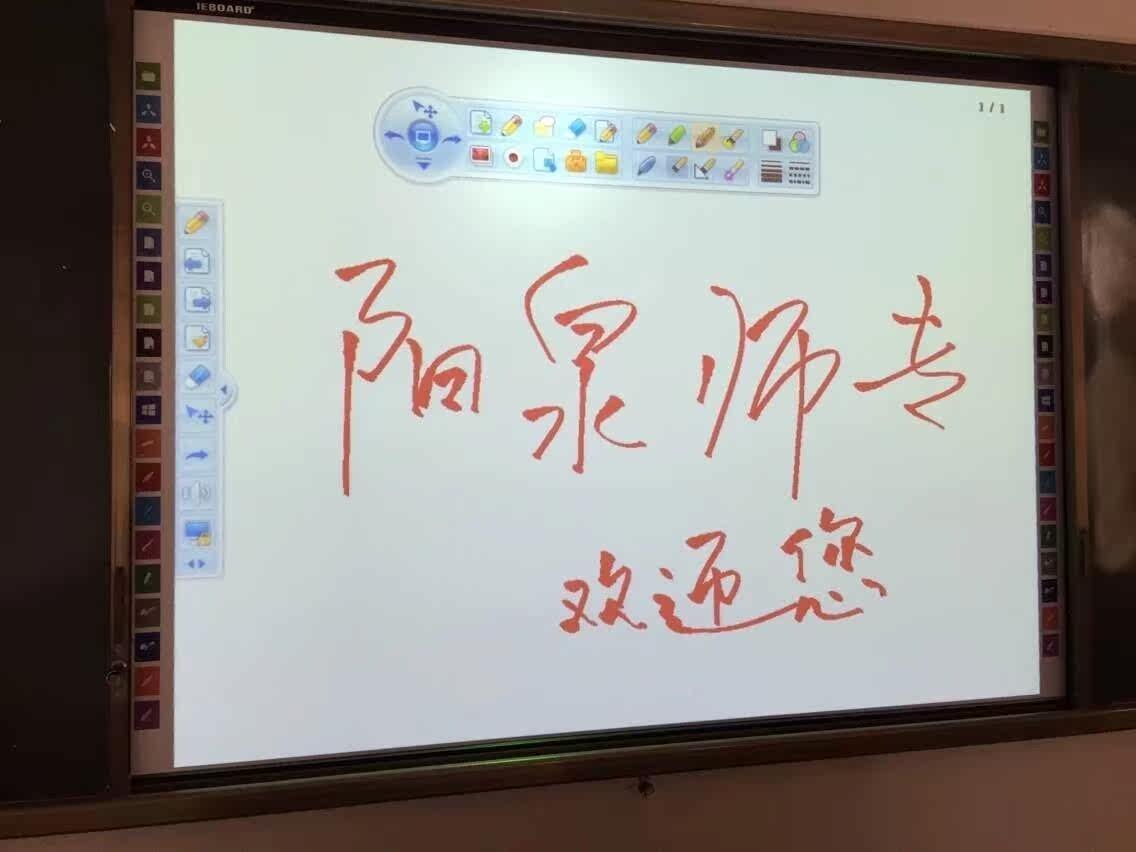 IEBOARD
1 / 1
阳泉师专
欢迎您